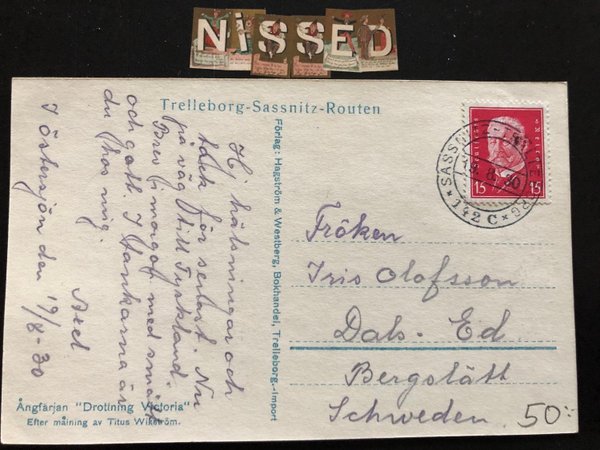 NiSSED
Trelleborg-Sassnitz-Routen
Hj. hälsningar och
tack för senast. Nu
på väg till Tyskland.
Brev i morgon med små
och gott. I tankarna är
du hos mig.
Axel
I östersjön den 19/8-30
Ångfärjan "Drottning Victoria"
Efter målning av Titus Wikström.
Förlag: Hagström & Westberg, Bokhandel, Trelleborg.-Import
SASSNITZ-TRELLEBORG
8. 30
* 142 C *
15 15
Fröken
Iris Olofsson
Dals-Ed
Bergslätt
Schweden.
50:-